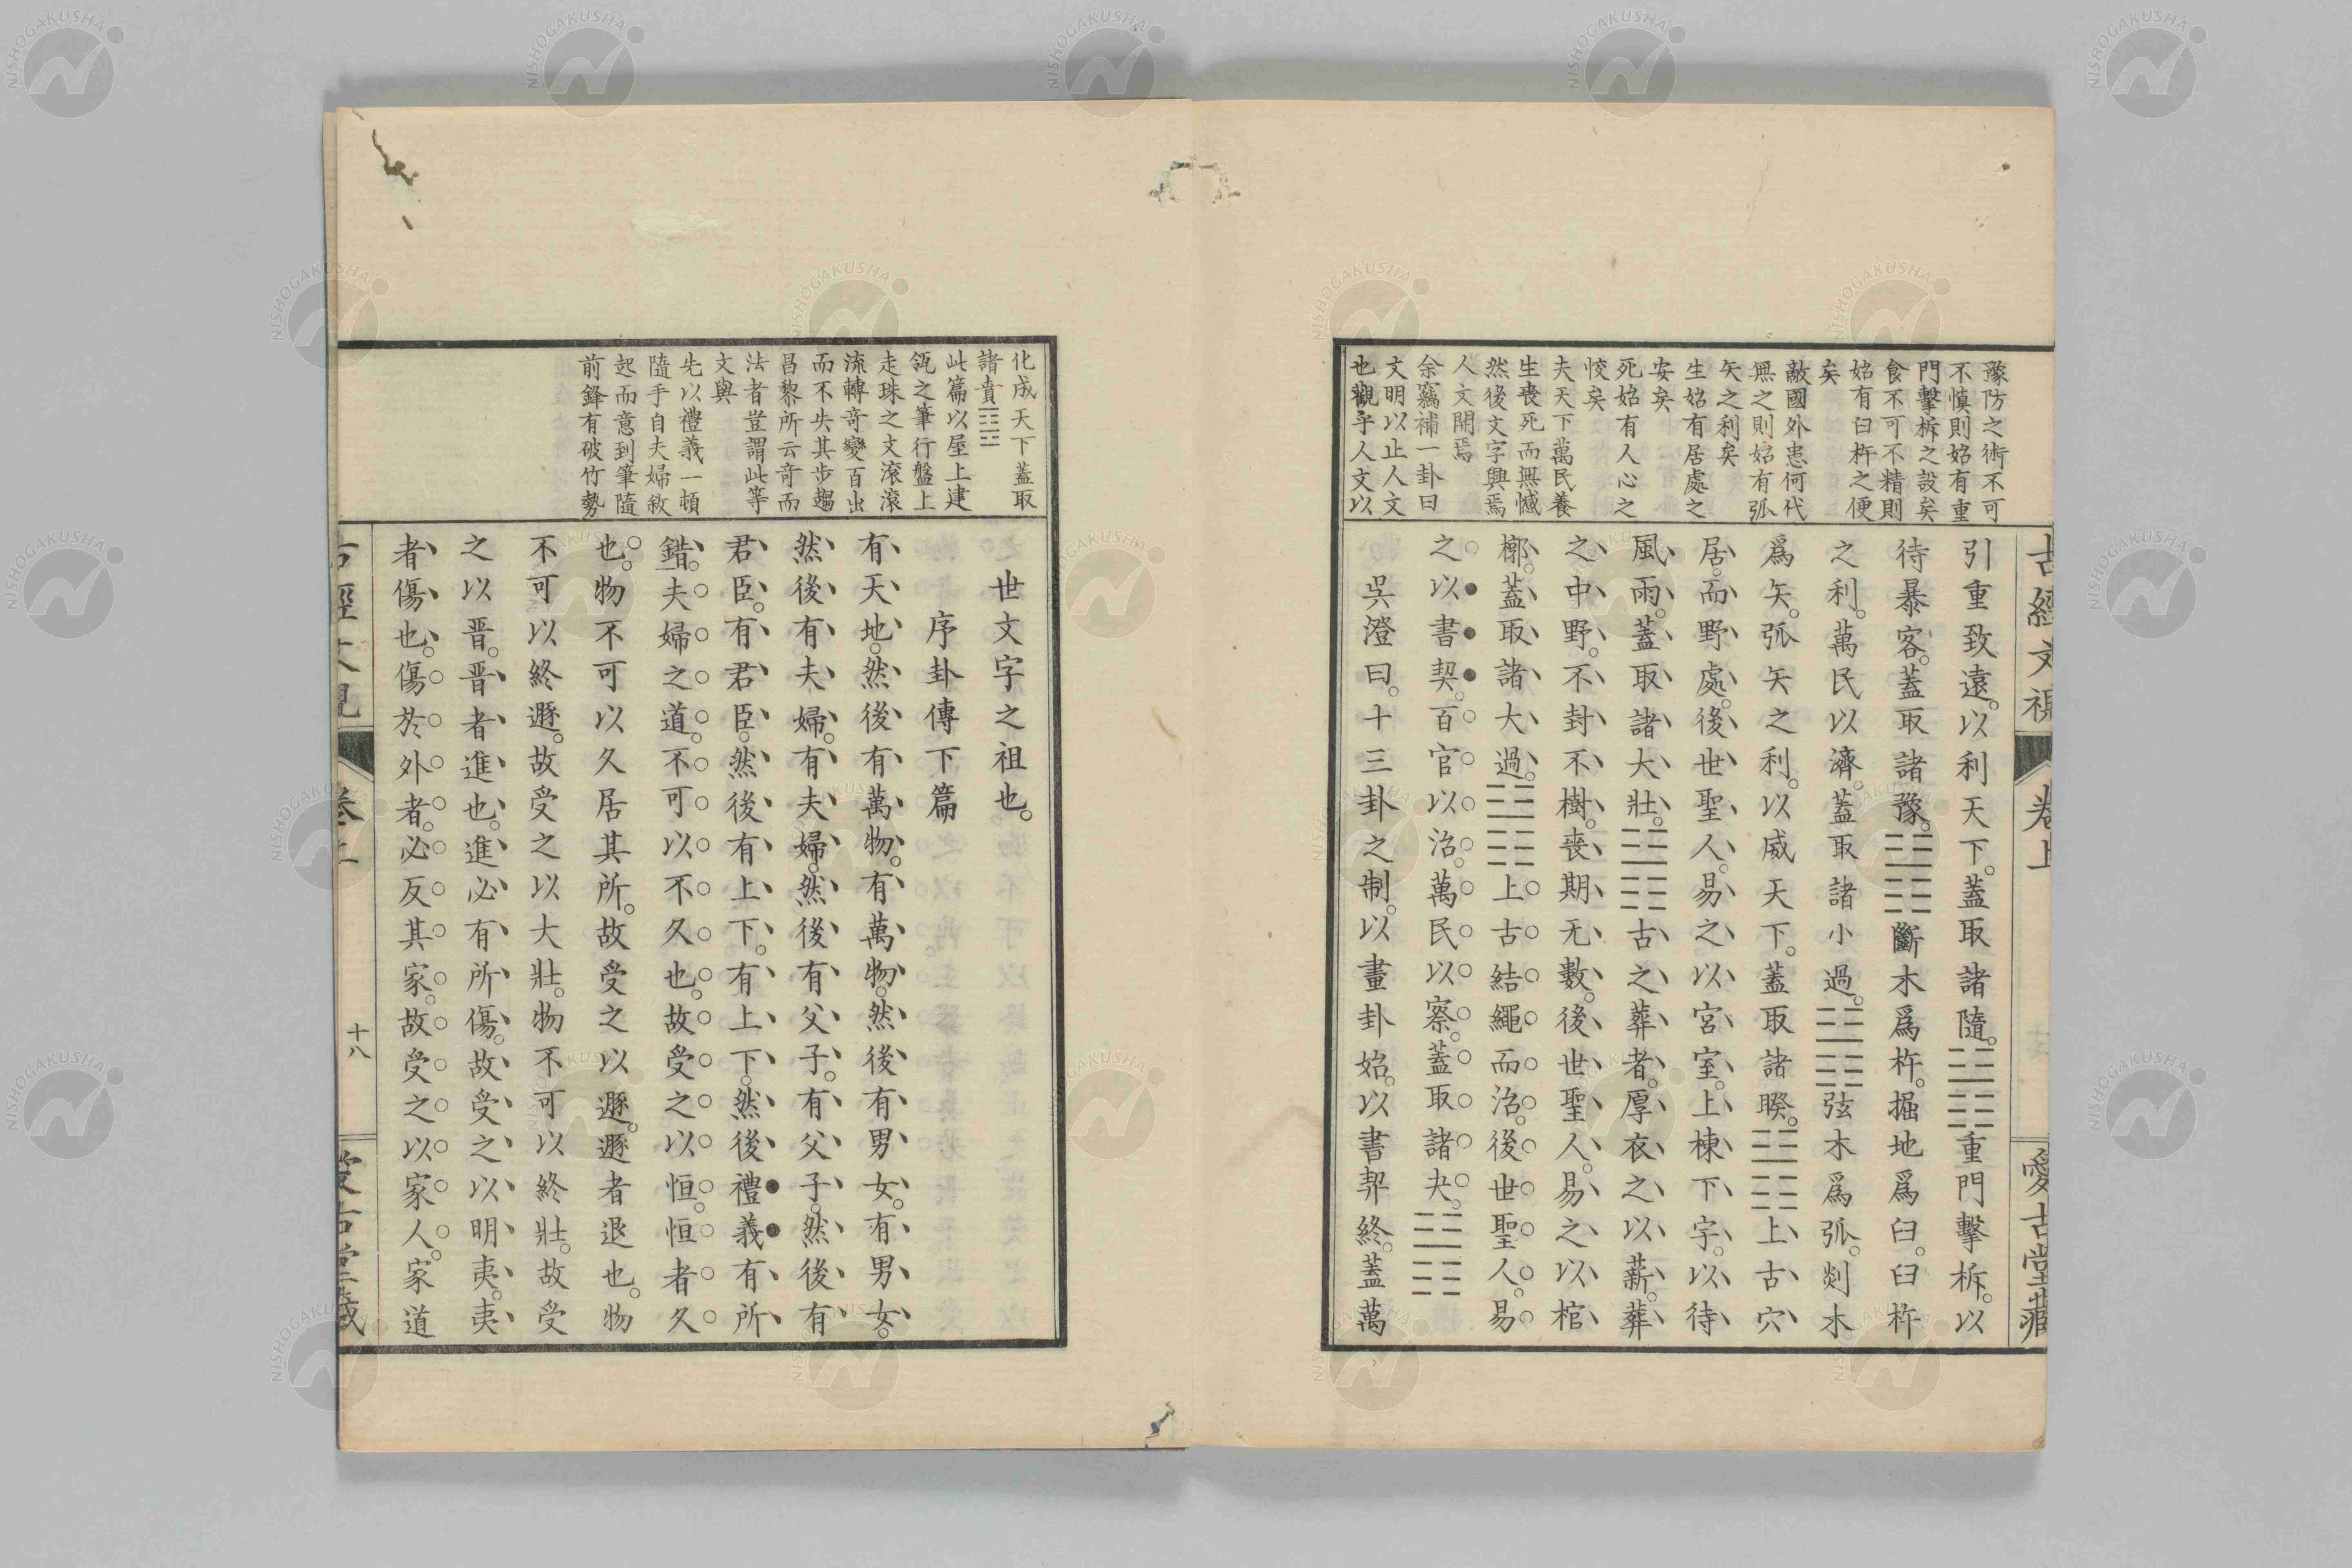 古經文視
卷上
愛古堂藏
豫防之術不可
不慎則始有重
門擊柝之設矣
食不可不精則
始有臼杵之便
矣
敵國外患何代
無之則始有弧
矢之利矣
生始有居處之
安矣
死始有人心之
恔矣
夫天下萬民養
生喪死而無憾
然後文字興焉
人文開焉
余竊補一卦曰
文明以止人文
也觀乎人文以
引重致遠。以利天下。蓋取諸隨。䷐重門擊柝。以
待暴客。蓋取諸豫。䷏斷木爲杵。掘地爲臼。臼杵
之利。萬民以濟。蓋取諸小過。䷽弦木爲弧。剡木
爲矢。弧矢之利。以威天下。蓋取諸睽。䷥上古穴
居。而野處。後世聖人。易之以宮室。上棟下宇。以待
風雨。蓋取諸大壯。䷡古之葬者。厚衣之以薪。葬
之中野。不封不樹。喪期无數。後世聖人。易之以棺
槨。蓋取諸大過。䷛上古結繩而治。後世聖人。易
之以書契。百官以治。萬民以察。蓋取諸夬。䷪
吳澄曰。十三卦之制。以畫卦始。以書契終。蓋萬
化成天下蓋取
諸賁䷕
此篇以屋上建
瓴之筆行盤上
走珠之文滾滾
流轉奇變百出
而不失其步趨
昌黎所云奇而
法者豈謂此等
文與
先以禮義一頓
隨手自夫婦敘
起而意到筆隨
前鋒有破竹勢
世文字之祖也。
序卦傳下篇
有天地。然後有萬物。有萬物。然後有男女。有男女。
然後有夫婦。有夫婦。然後有父子。有父子。然後有
君臣。有君臣。然後有上下。有上下。然後禮義有所
錯。夫婦之道。不可以不久也。故受之以恒。恒者久
也。物不可以久居其所。故受之以遯。遯者退也。物
不可以終遯。故受之以大壯。物不可以終壯。故受
之以晋。晋者進也。進必有所傷。故受之以明夷。夷
者傷也。傷於外者。必反其家。故受之以家人。家道
十八